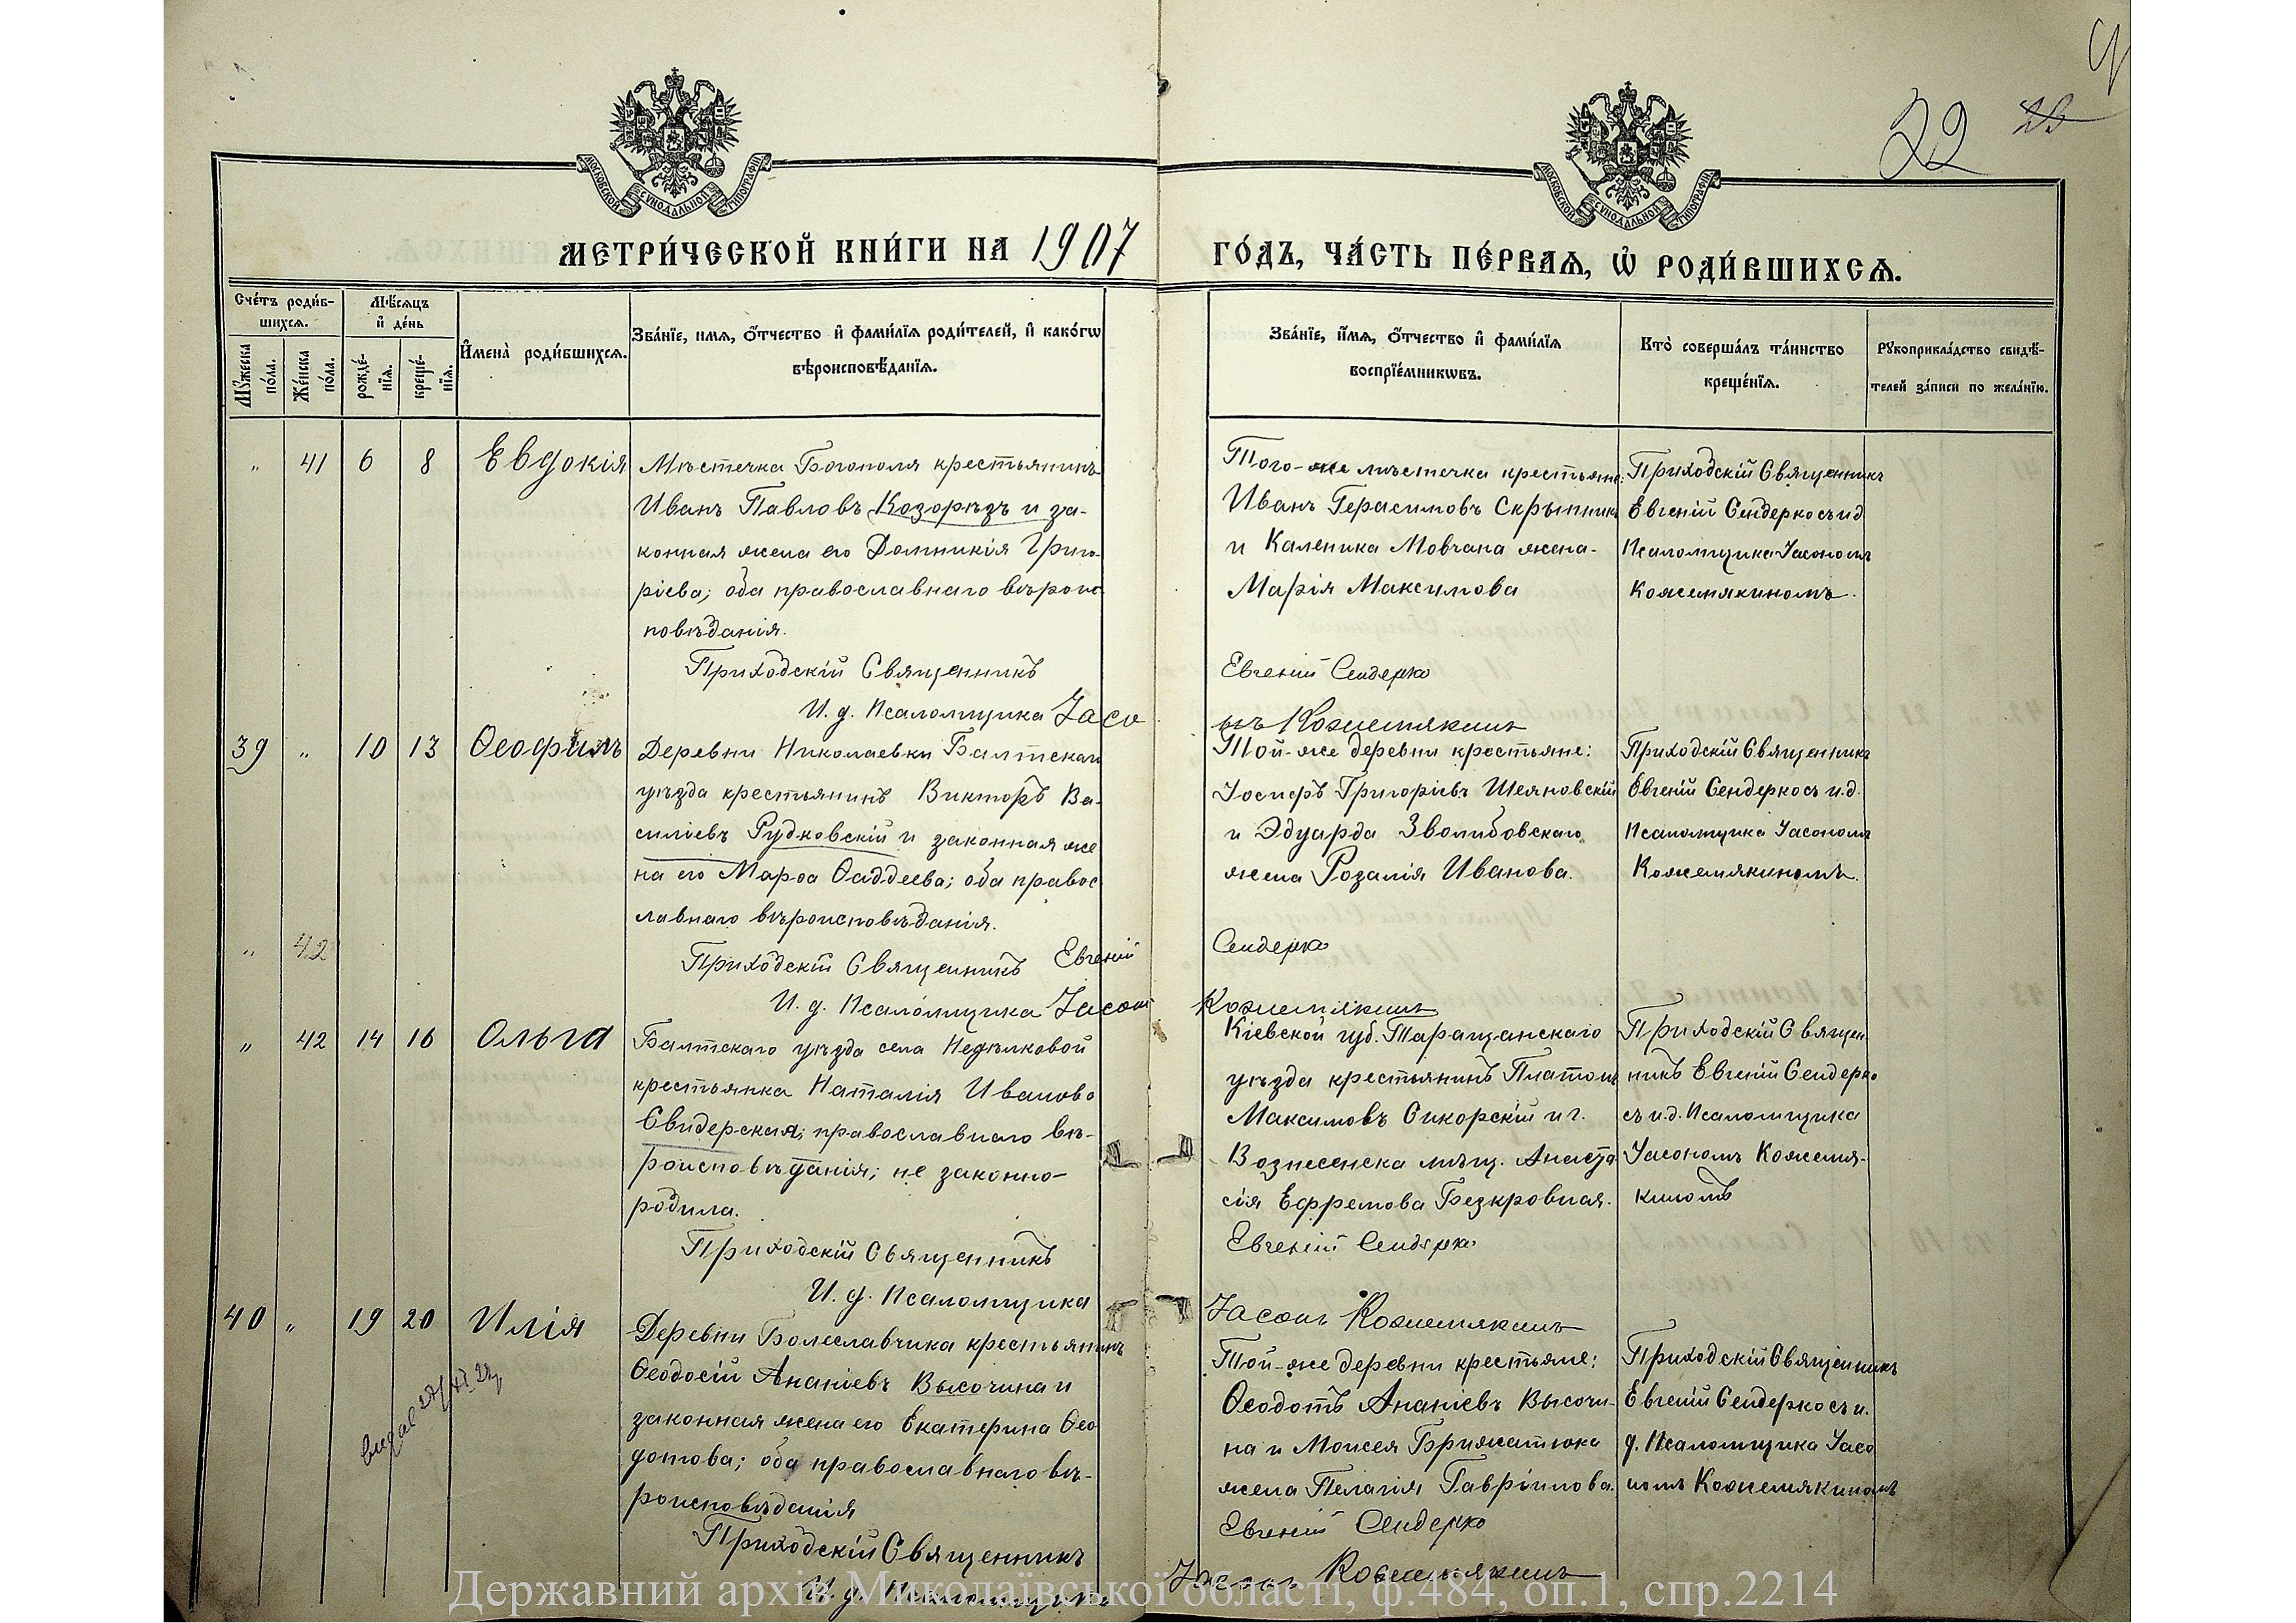 22
МОСКОВСКОЙ СУНОДАЛЬНОЙ ТИПОГРАФІИ
МОСКОВСКОЙ СУНОДАЛЬНОЙ ТИПОГРАФІИ
МЕТРИ́ЧЕСКОЙ КНИ́ГИ НА 1907
ГО́ДЪ, ЧА́СТЬ ПЕ́РВАѦ, Ѡ҆ РОДИ́ВШИХСѦ.
Сче́тъ роди́в-
шихсѧ.
Мѣ́сѧцъ
и҆ де́нь
Мꙋ́жеска
по́ла.
Же́нска
по́ла.
рожде́-
нїѧ.
креще́-
нїѧ.
И҆мена̀ роди́вшихсѧ.
Зва́нїе, имѧ, о҆́тчество и҆ фами́лїѧ роди́телей, и҆ како́гѡ
вѣроисповѣ́данїѧ.
Зва́нїе, и҆́мѧ, о҆́тчество и҆ фами́лїѧ
воспрїе́мникѡвъ.
Кто̀ соверша́лъ та́инство
креще́нїѧ.
Рꙋкоприкла́дство свидѣ́-
телей за́писи по жела́нїю.
„ 41 6 8 Евдокія
Мѣстечка Богополя крестьянинъ
Иванъ Павловъ Козорѣзъ и за-
конная жена его Домникія Григо-
рієва; оба православнаго вѣроис
повѣданія.
Приходскій Священникъ
И. д. Псаломщика Іасо
Того-же мѣстечка крестьяне:
Иванъ Герасимовъ Скрыпникъ
и Каленика Мовчана жена-
Марія Максимова
Евгеній Сендерко
нъ Кожемякинъ
Приходскій Священникъ
Евгеній Сендерко съ и.д.
Псаломщика Іасономъ
Кожемякиномъ.
39 „ 10 13 Ѳеофилъ
Деревни Николаевки Балтскаго
уѣзда крестьянинъ Викторъ Ва-
силіевъ Рудковскій и законная же
на его Марѳа Ѳаддеева; оба правос
лавнаго вѣроисповѣданія.
Приходскій Священникъ Евгеній
И. д. Псаломщика Іасонъ
Той-же деревни крестьяне:
Іосифъ Григоріевъ Шеяновскій
и Эдуарда Зволибовскаго
жена Розалія Иванова.
Сендерко
Кожемякинъ
Приходскій Священникъ
Євгеній Сендерко съ и.д.
Псаломщика Іасономъ
Кожемякиномъ.
„ 42
„ 42 14 16 Ольга
Балтскаго уѣзда села Недѣлковой
крестьянка Наталія Иванова
Свидерская; православнаго вѣ-
роисповѣданія; не законно-
родила.
Приходскій Священникъ
И. д. Псаломщика
Кіевской губ. Таращанскаго
уѣзда крестьянинъ Платонъ
Максимовъ Сикорскій и г.
Вознесенска мѣщ. Анаста
сія Ефремова Безкровная.
Евгеній Сендерко
Іасонъ Кожемякинъ
Приходскій Священ
никъ Евгеній Сендерко
съ и.д. Псаломщика
Іасономъ Кожемя-
киномъ
40 „ 19 20 Илія
Деревни Болеславчика крестьянинъ
Ѳеодосій Ананіевъ Высочина и
законная жена его Екатерина Ѳео
дотова; оба православнаго вѣ-
роисповѣданія
Приходскій Священникъ
И. д. Псаломщика
Той-же деревни крестьяне:
Ѳеодотъ Ананіевъ Высочи-
на и Моисея Брижатюка
жена Пелагія Гавріилова.
Евгеній Сендерко
Іасонъ Кожемякинъ
Приходскій Священникъ
Евгеній Сендерко съ и.
д. Псаломщика Іасо
номъ Кожемякиномъ
Державний архів Миколаївської області, ф.484, оп.1, спр.2214